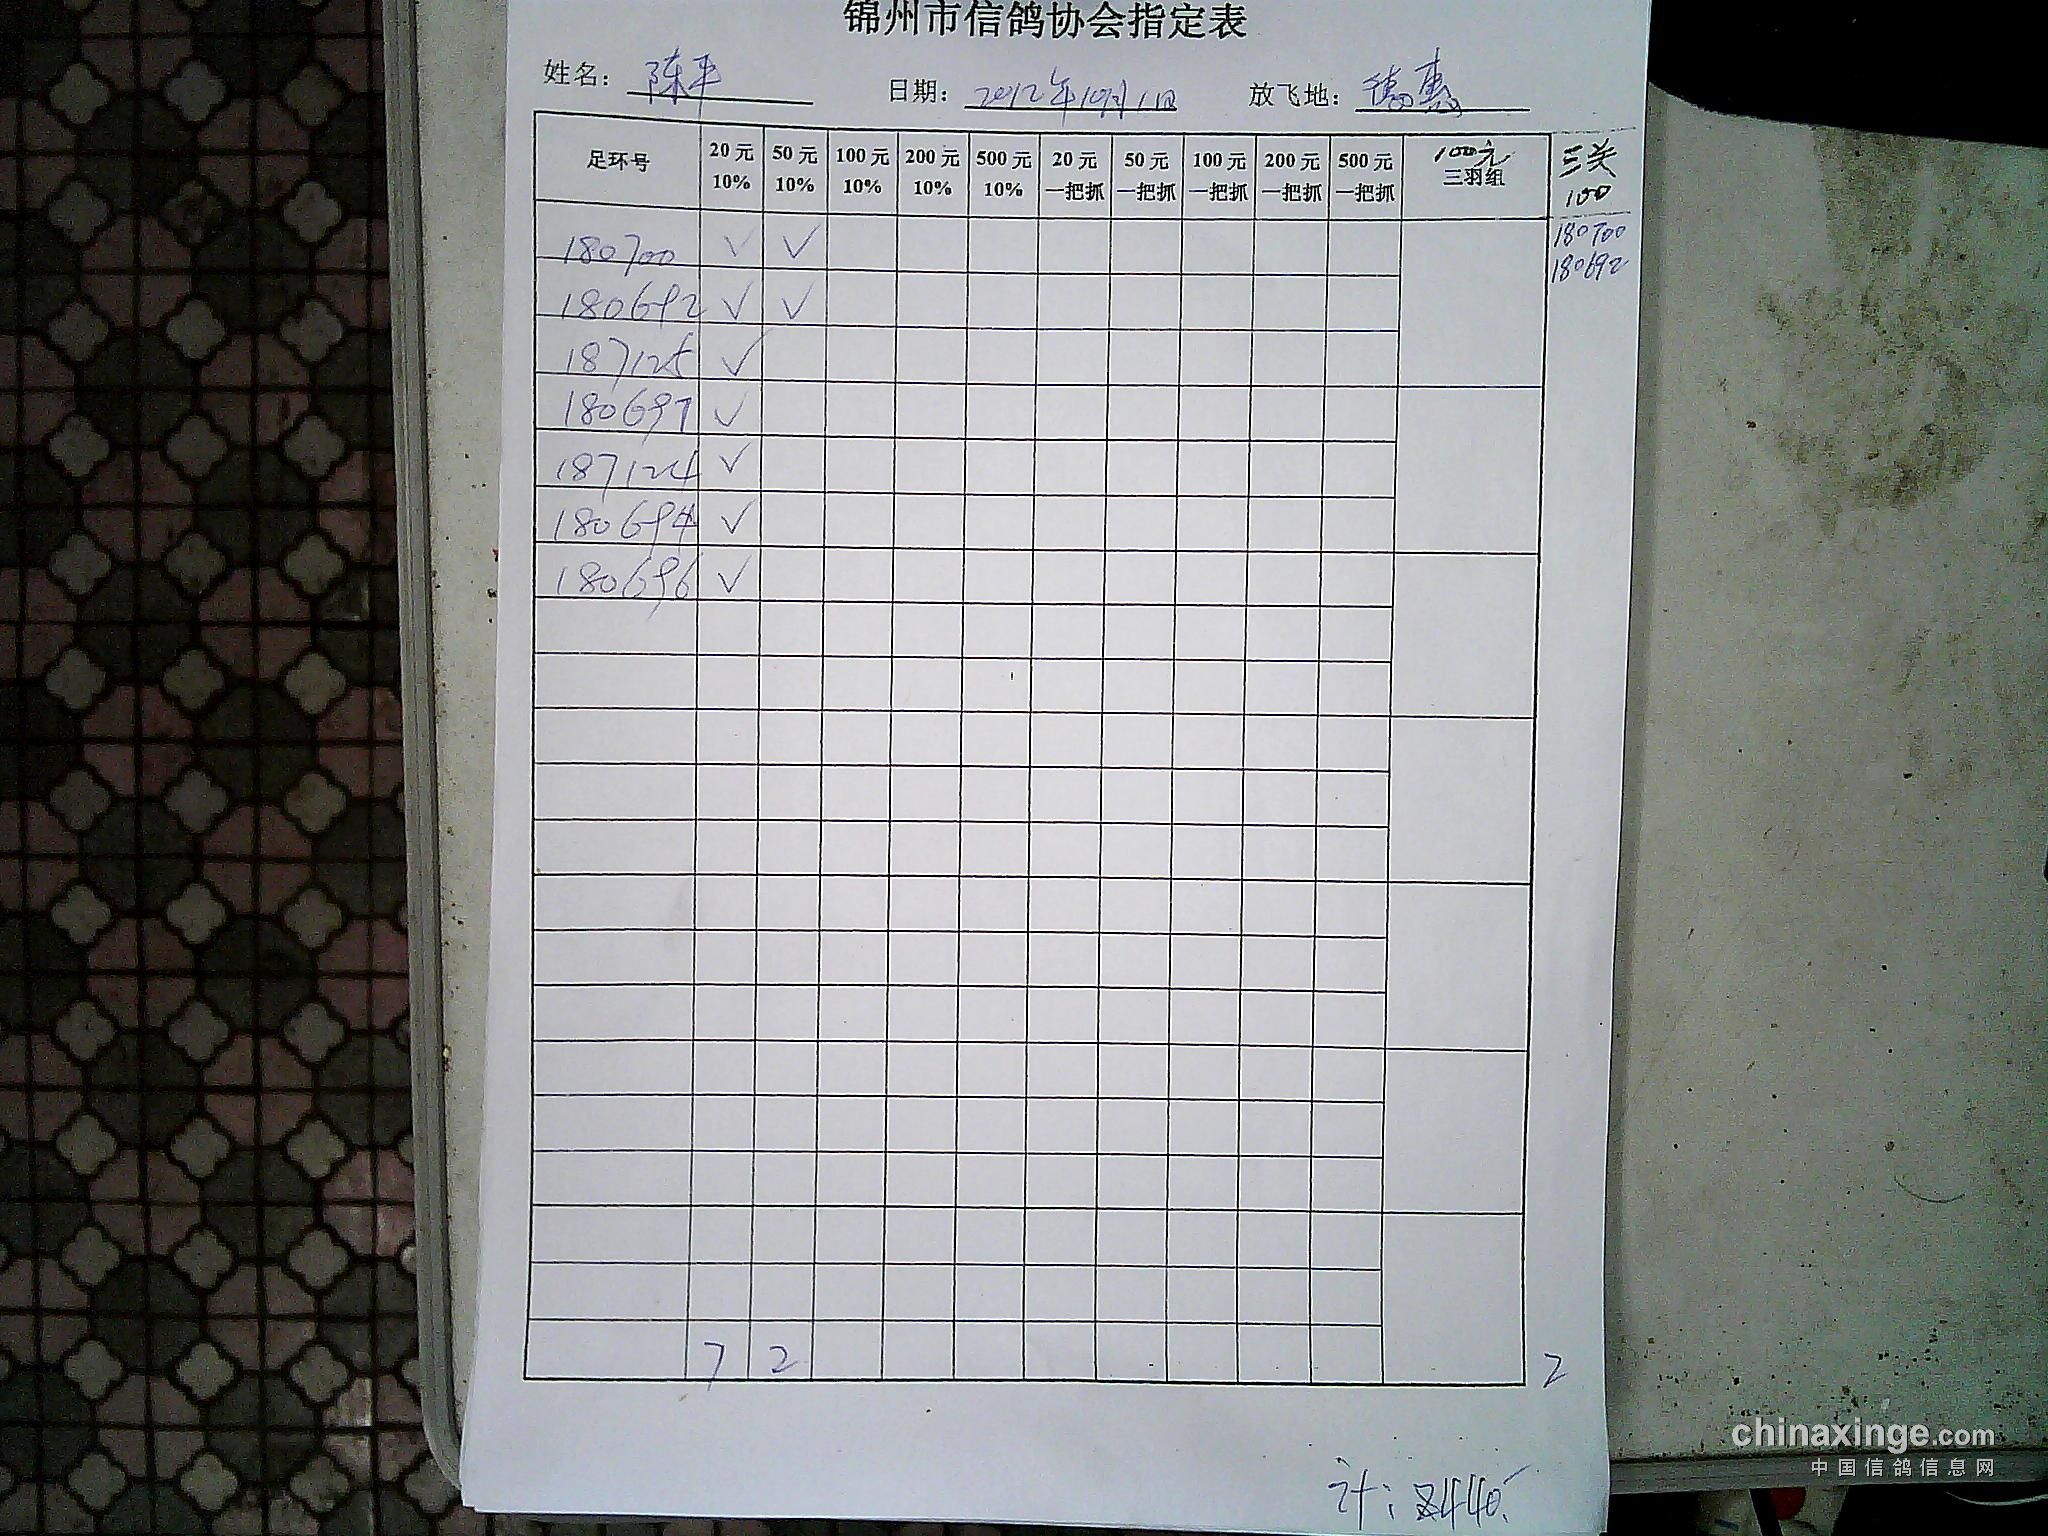 锦州市信鸽协会指定表
姓名： 陈平 日期： 2012年10月1日 放飞地： 德惠
足环号 20元 10% 50元 10% 100元 10% 200元 10% 500元 10% 20元 一把抓 50元 一把抓 100元 一把抓 200元 一把抓 500元 一把抓 100元 三羽组 三关 100
180700 √ √ 180700
180692 √ √ 180692
187125 √
180697 √
187124 √
180694 √
180696 √
7 2 2
计：440
chinaxinge.com
中国信鸽信息网